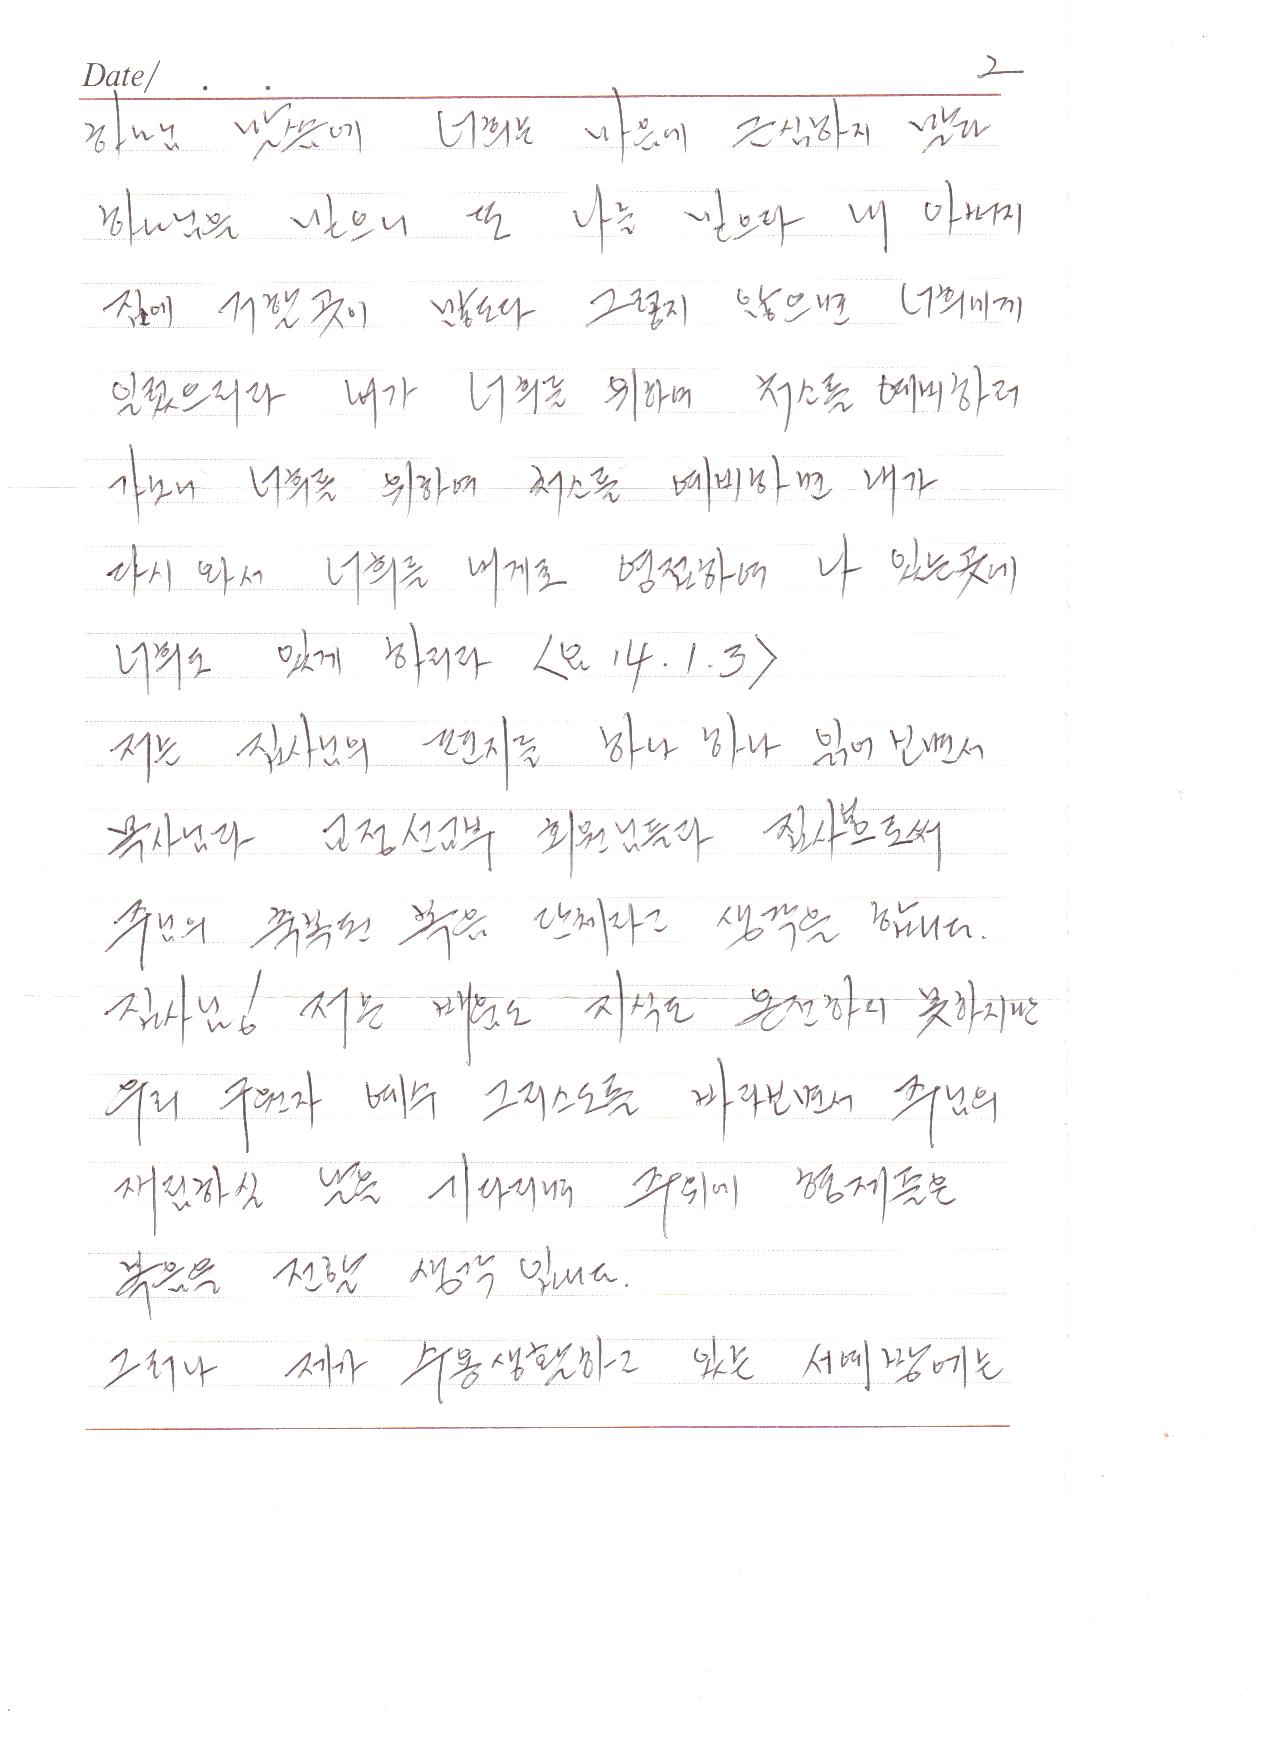 Date/ . . 2
하나님 말씀에 너희는 마음에 근심하지 말라
하나님을 믿으니 또 나를 믿으라 내 아버지
집에 거할 곳이 많도다 그렇지 않으면 너희에게
일렀으리라 내가 너희를 위하여 처소를 예비하러
가노니 너희를 위하여 처소를 예비하면 내가
다시 와서 너희를 내게로 영접하여 나 있는곳에
너희도 있게 하리라 <요 14.1.3>
저는 집사님의 편지를 하나 하나 읽어 보면서
목사님과 교정선교부 회원님들과 집사님으로써
주님의 축복된 복음 단체라고 생각을 합니다.
집사님! 저는 배움도 지식도 온전하지 못하지만
우리 구원자 예수 그리스도를 바라보면서 주님의
재림하실 날을 기다리며 주위에 형제들은
복음을 전할 생각 입니다.
그러나 제가 수용생활하고 있는 서예방에는